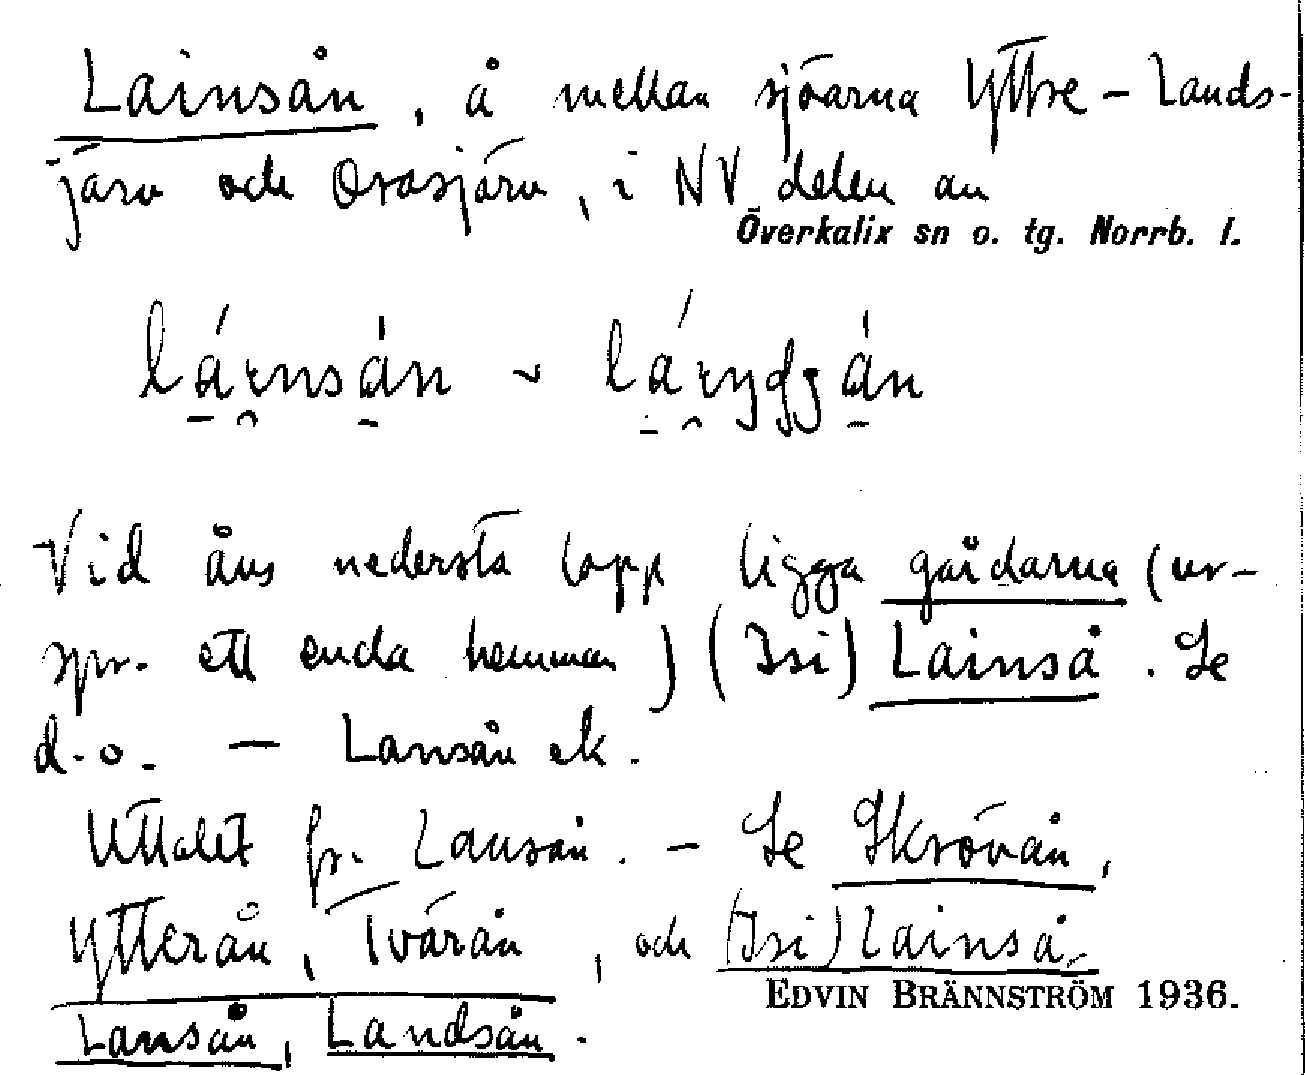 Lainsån, å mellan sjöarna Yttre-Lands-
järv och Orasjärv, i NV delen av
Överkalix sn o. tg. Norrb. l.
Vid åns nedersta lopp ligga gårdarna (ur-
spr. ett enda hemman) (Isi) Lainså. Se
d.o. — Lansån ek.
Uttalet fr. Lansån. — Se Skrövån,
Ytterån, Tvärån, och (Isi) Lainså,
EDVIN BRÄNNSTRÖM 1936.
Lansån, Landsån.